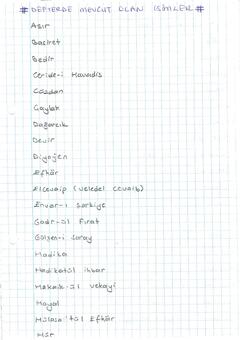 # DEFTERDE MEVCUT OLAN İSİMLER #
Asır
Basiret
Bedir
Ceride-i Havadis
Cosdan
Çaylak
Dağarcık
Devir
Diyojen
Efkâr
Elcevaip (Veledel Cevaib)
Envar-ı Şarkiye
Gadr-ül Fırat
Gülşen-i Saray
Hadika
Hadikatül ihbar
Hakaik-ül Vekayi
Hayal
Hülasa'tül Efkâr
Hür